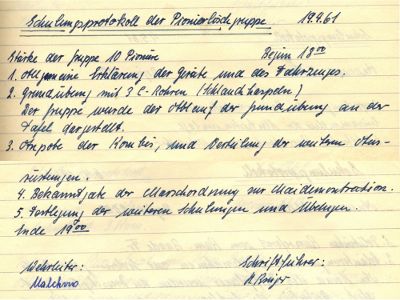 Schulungsprotokoll der Pionierlöschgruppe 19.4.61
Stärke der Gruppe 10 Pioniere Beginn 18 00
1. Allgemeine Erklärung der Geräte und des Fahrzeuges.
2. Grundübung mit 3 C-Rohren (Schlauchhaspeln)
Der Gruppe wurde der Ablauf der Grundübung an der
Tafel dargestellt.
3. Ausgabe der Kombis, und Verteilung der weiteren Aus-
rüstungen.
4. Bekanntgabe der Marschordnung zur Maidemonstration.
5. Festlegung der weiteren Schulungen und Übungen.
Ende 19 00
Wehrleiter: Schriftführer: